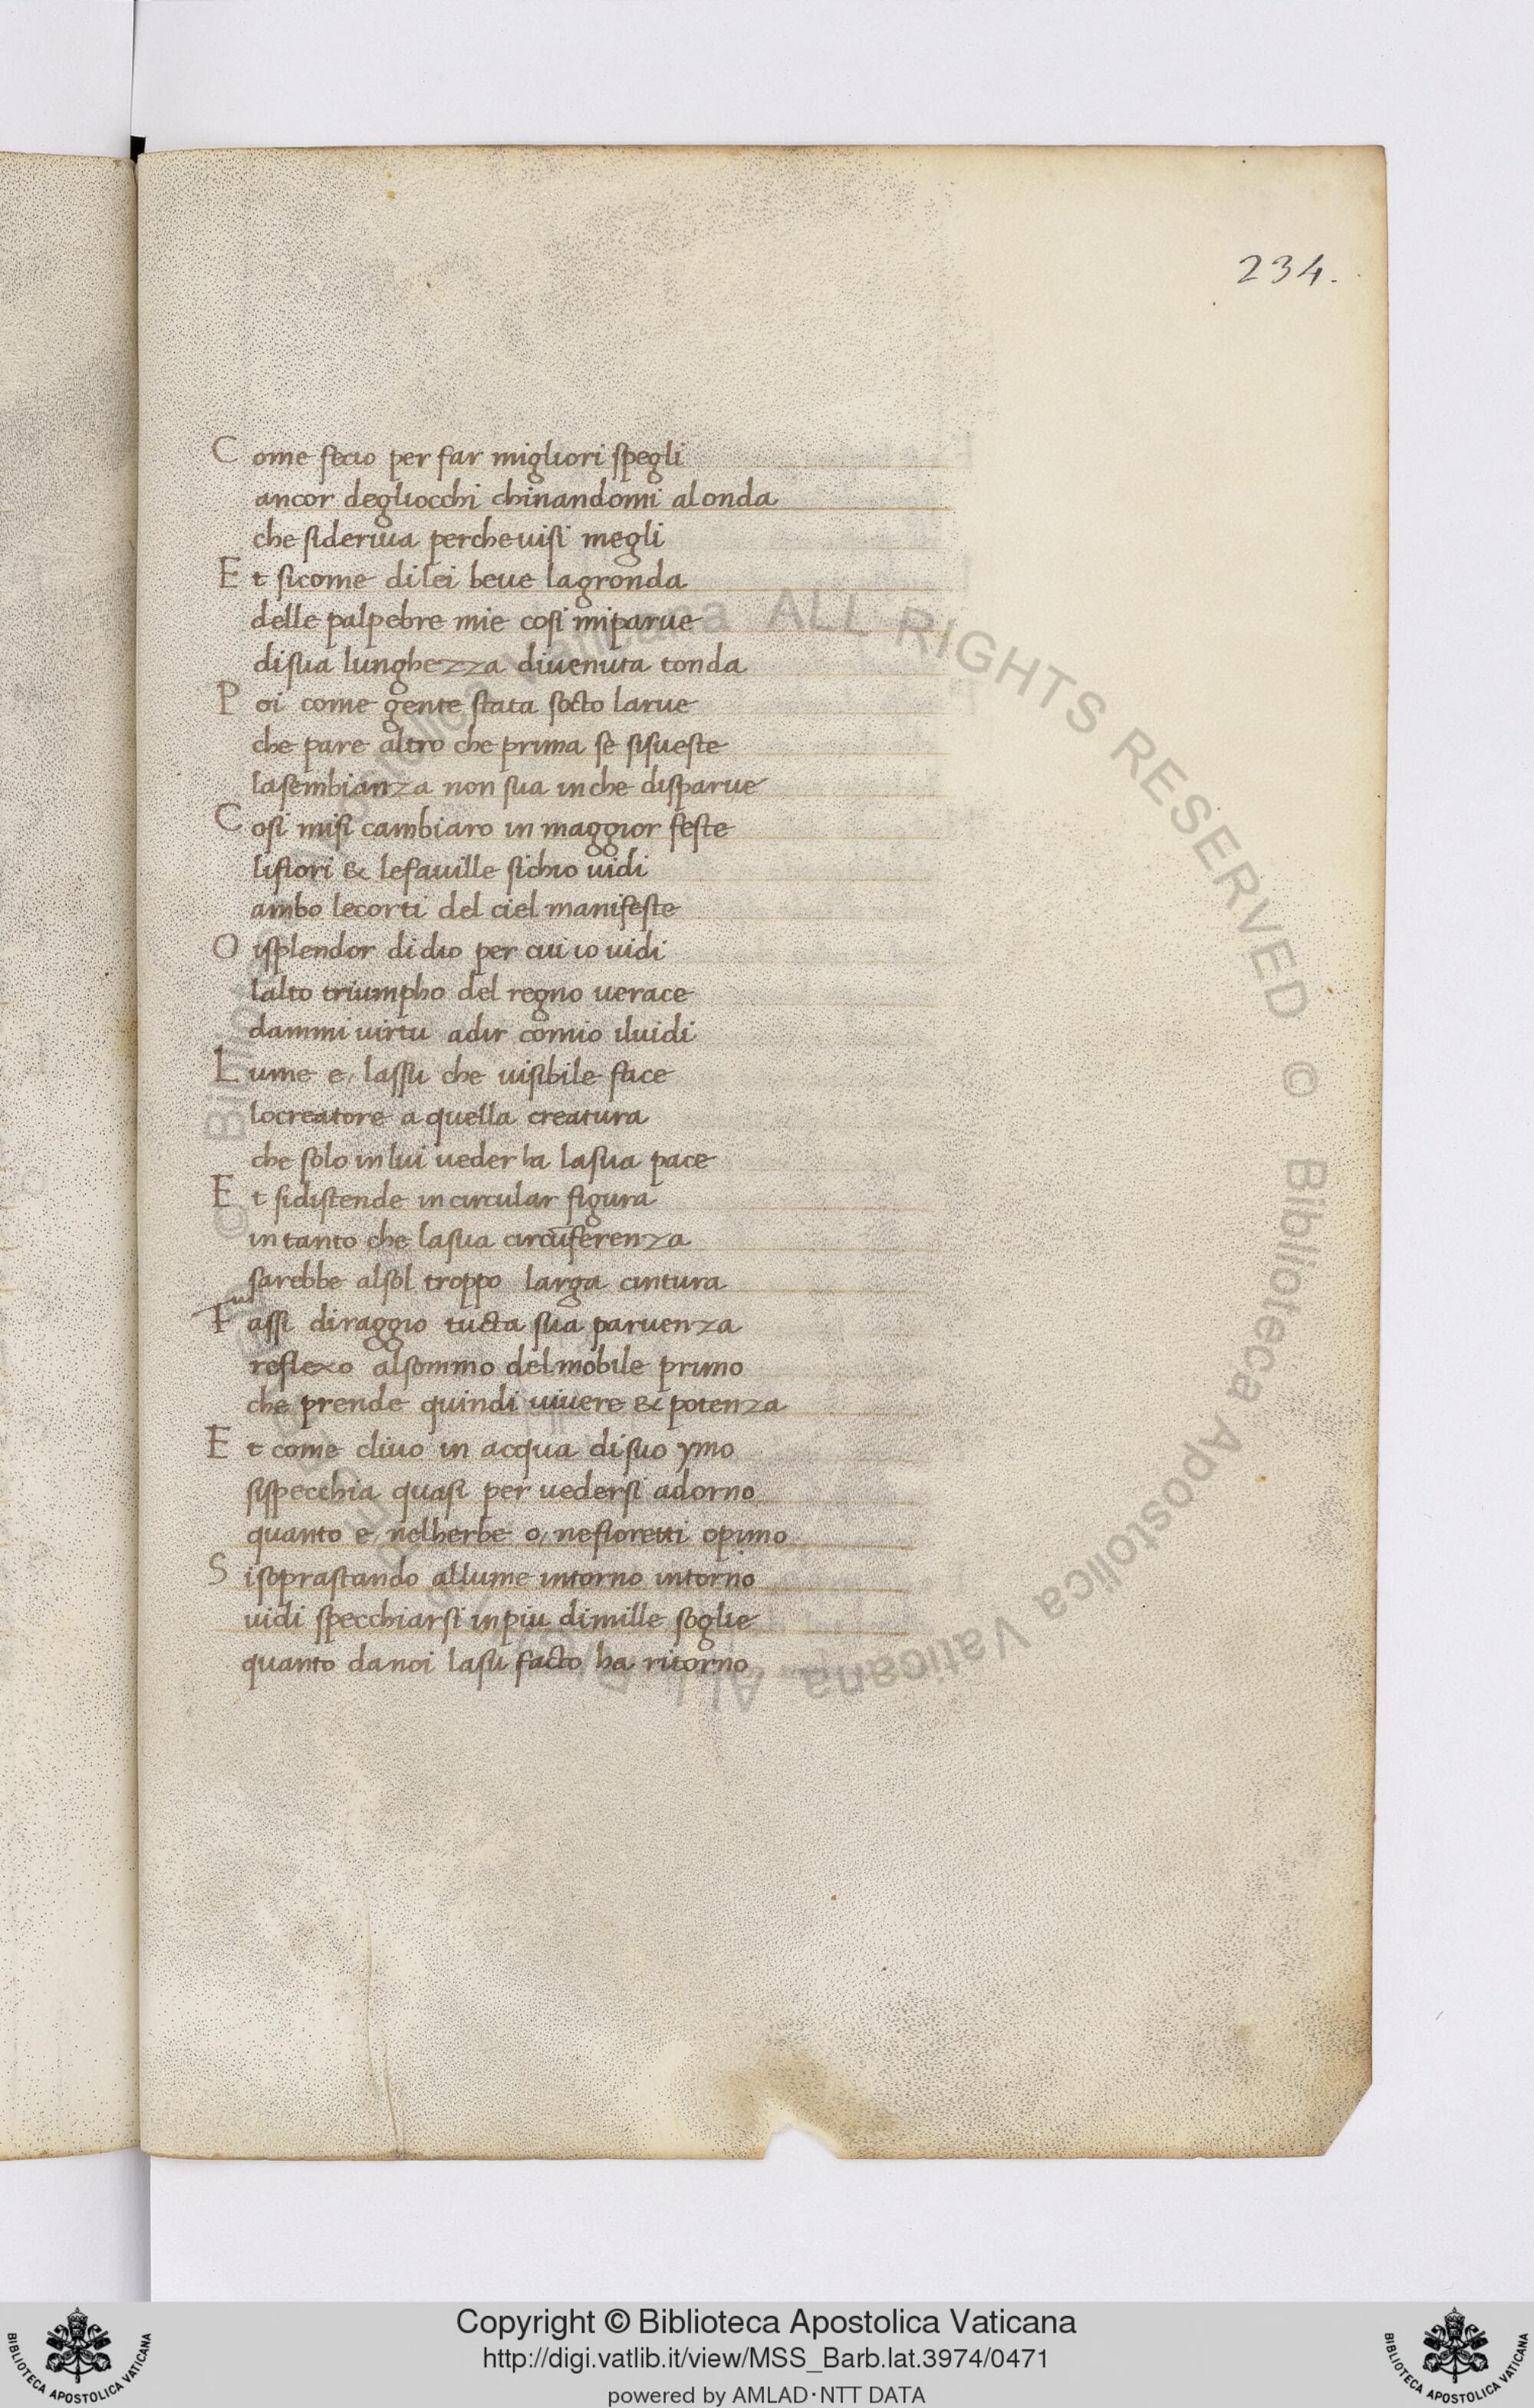 234.
Come fecio per far migliori spegli
ancor degliocchi chinandomi alonda
che sideriua percheuisi megli
Et sicome dilei beue lagronda
delle palpebre mie cosi miparue
disua lunghezza diuenuta tonda
Poi come gente stata socto larue
che pare altro che prima se sisueste
lasembianza non sua inche disparue
Cosi misi cambiaro in maggior feste
lifiori & lefauille sichio uidi
ambo lecorti del ciel manifeste
O isplendor didio per cui io uidi
lalto triumpho del regno uerace
dammi uirtu adir comio iluidi
Lume e, lassu che uisibile face
locreatore a quella creatura
che solo inlui ueder ha lasua pace
Et sidistende incircular figura
intanto che lasua circūferenza
sarebbe alsol troppo larga cintura
Fassi diraggio tucta sua paruenza
reflexo alsommo delmobile primo
che prende quindi uiuere & potenza
Et come cliuo in acqua disuo ymo
sispecchia quasi per uedersi adorno
quanto e, nelherbe o, nefioretti opimo
Sisoprastando allume intorno intorno
uidi specchiarsi inpiu dimille soglie
quanto danoi lasu facto ha ritorno
© Biblioteca Apostolica Vaticana ALL RIGHTS RESERVED © Biblioteca Apostolica Vaticana
Copyright © Biblioteca Apostolica Vaticana
http://digi.vatlib.it/view/MSS_Barb.lat.3974/0471
powered by AMLAD·NTT DATA
BIBLIOTECA APOSTOLICA VATICANA
BIBLIOTECA APOSTOLICA VATICANA